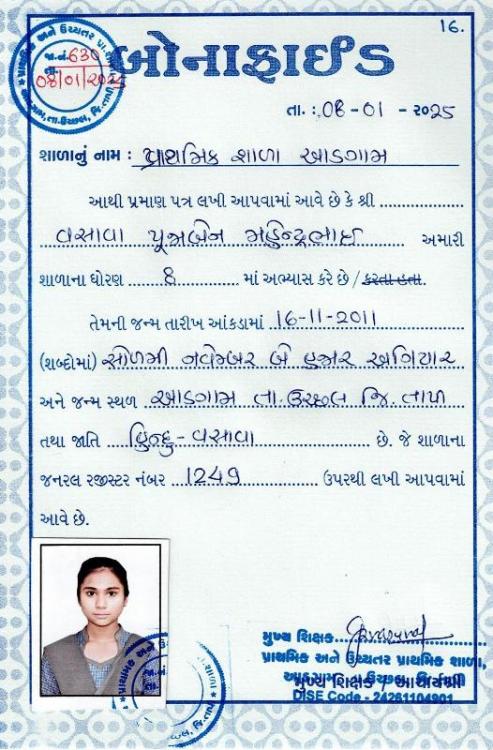 16.
પ્રાથમિક અને ઉચ્ચતર પ્રા.શાળા
જા.નં. 630
તા. 08/01/2025
બોનાફાઈડ
તા. : 08 - 01 - ૨૦25
શાળાનું નામ : પ્રાથમિક શાળા આડગામ
આથી પ્રમાણ પત્ર લખી આપવામાં આવે છે કે શ્રી
વસાવા પૂજાબેન મહેન્દ્રભાઈ અમારી
શાળાના ધોરણ 8 માં અભ્યાસ કરે છે / કરતા હતા.
તેમની જન્મ તારીખ આંકડામાં 16-11-2011
(શબ્દોમાં) સોળમી નવેમ્બર બે હજાર અગિયાર
અને જન્મ સ્થળ આડગામ તા. ઉચ્છલ જિ. તાપી
તથા જાતિ હિન્દુ - વસાવા છે. જે શાળાના
જનરલ રજીસ્ટર નંબર 1249 ઉપરથી લખી આપવામાં
આવે છે.
મુખ્ય શિક્ષક
પ્રાથમિક અને ઉચ્ચતર પ્રાથમિક શાળા,
મુખ્ય શિક્ષક / આચાર્યશ્રી
DISE Code - 24261104901